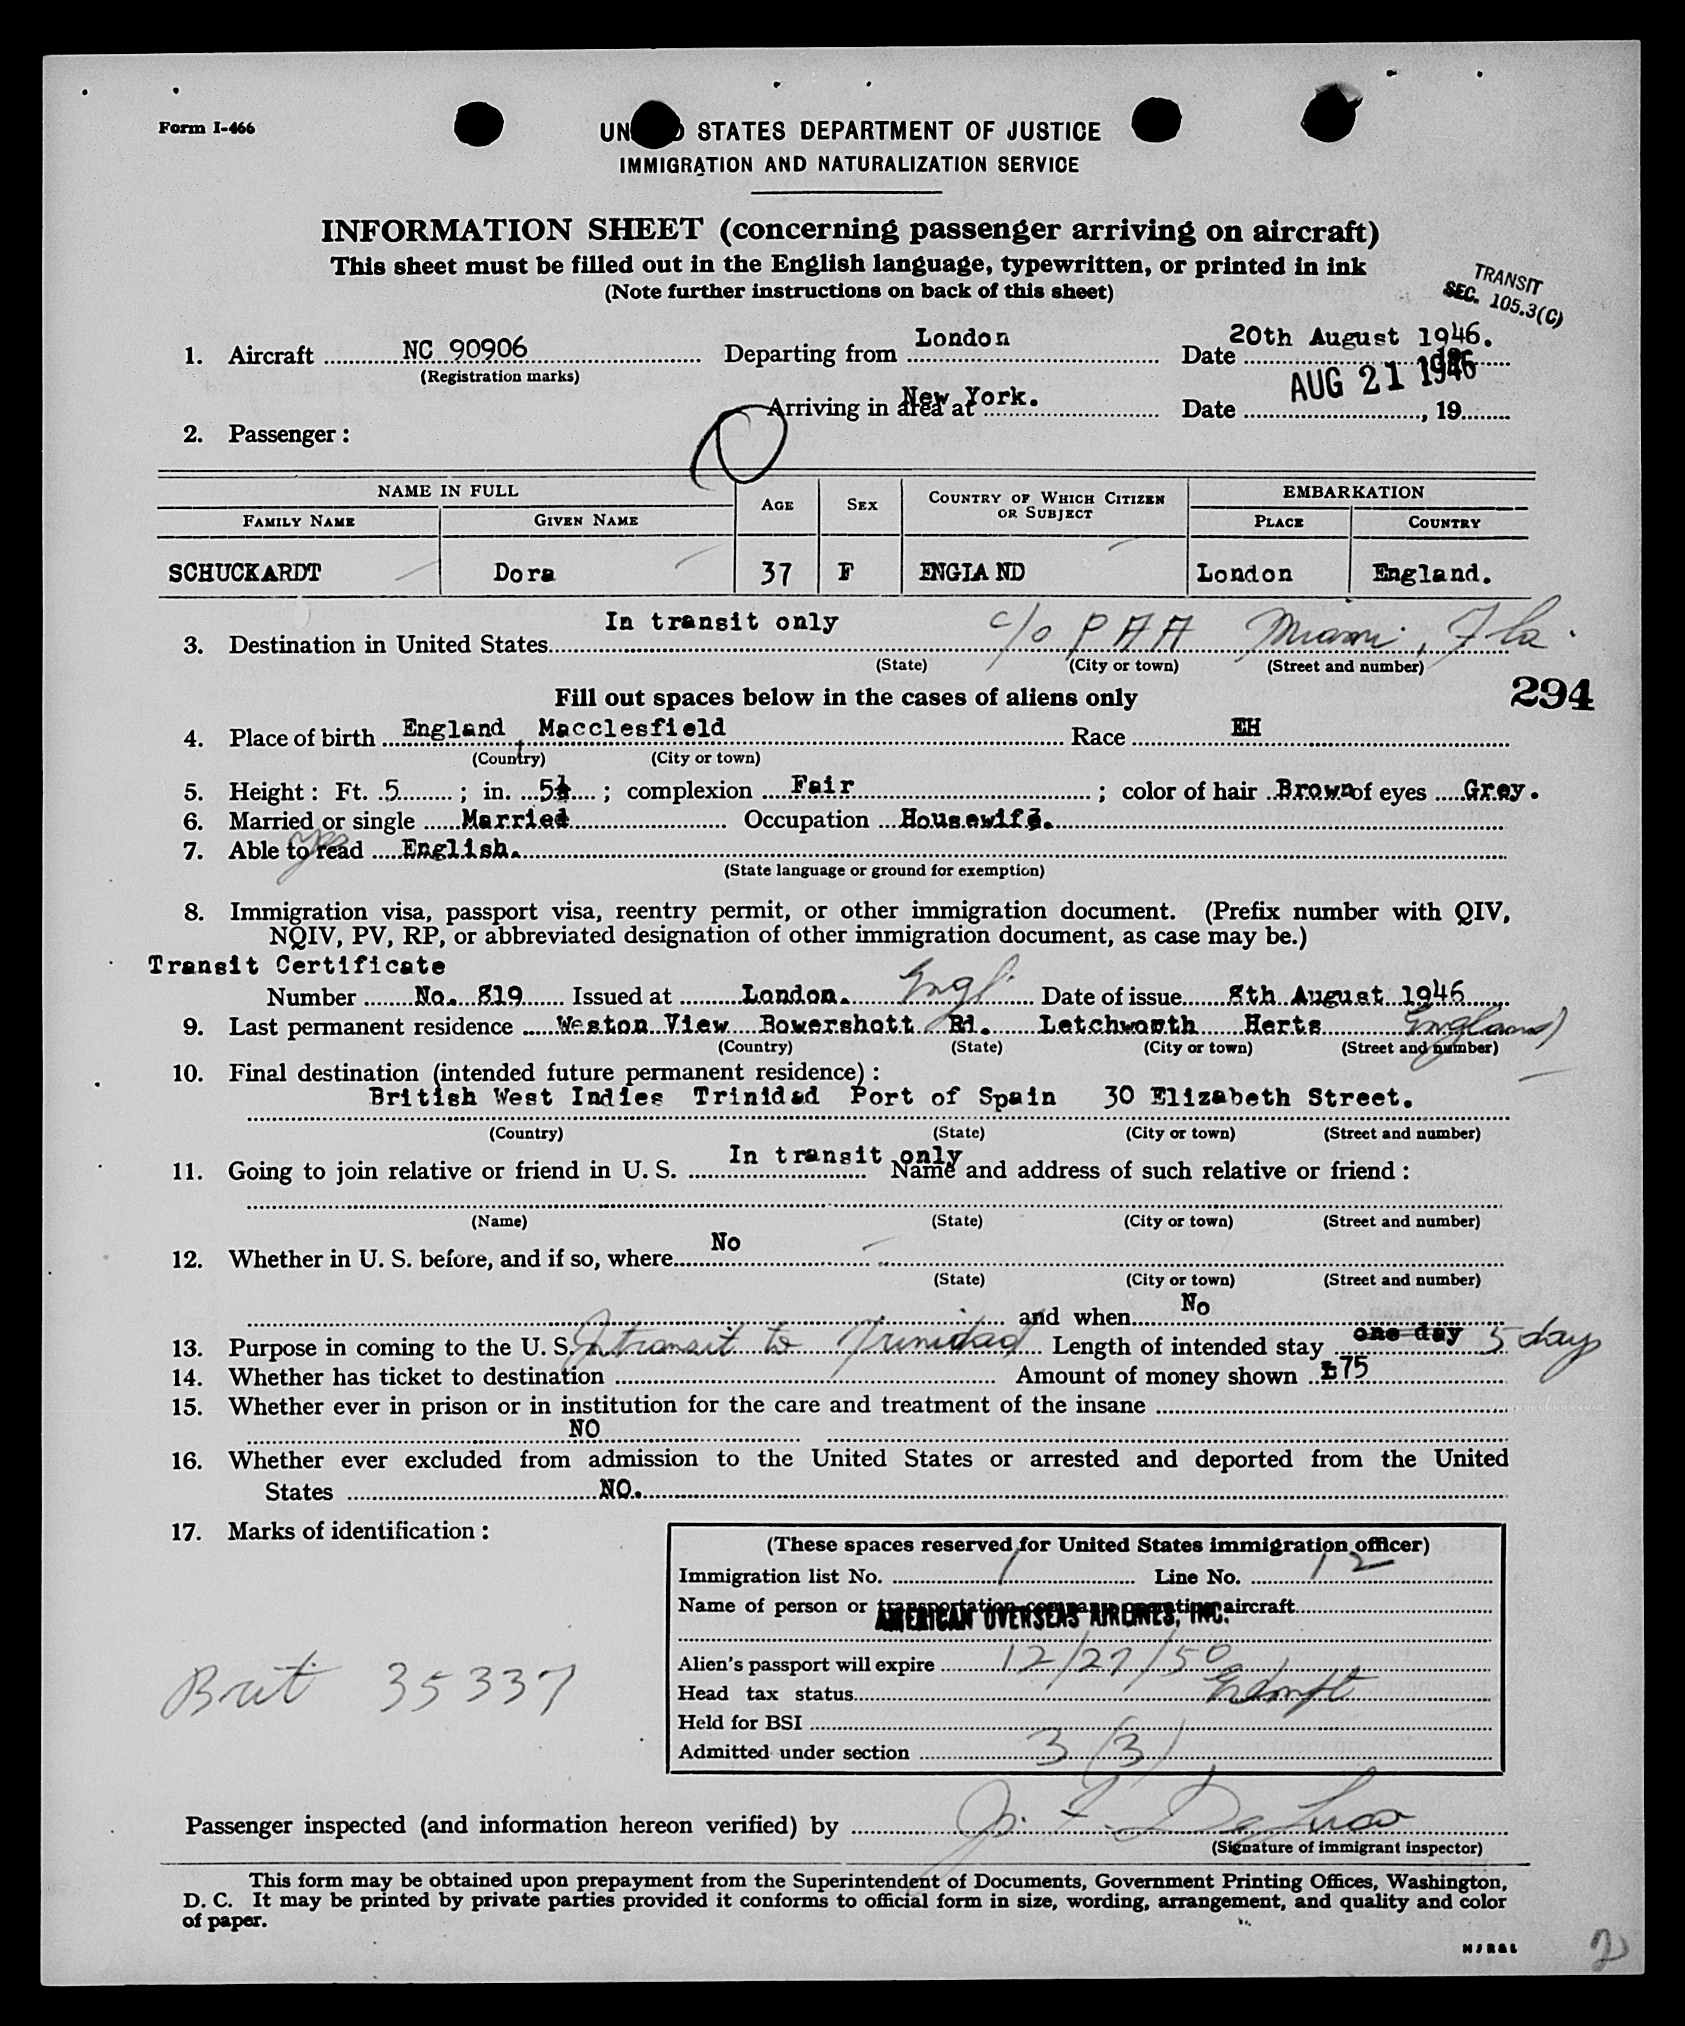 Form I-466
UNITED STATES DEPARTMENT OF JUSTICE
IMMIGRATION AND NATURALIZATION SERVICE
INFORMATION SHEET (concerning passenger arriving on aircraft)
This sheet must be filled out in the English language, typewritten, or printed in ink
(Note further instructions on back of this sheet)
TRANSIT
SEC. 105.3(C)
1. Aircraft NC 90906 Departing from London Date 20th August 1946.
(Registration marks)
Arriving in area at New York. Date AUG 21 1946, 19
2. Passenger:
NAME IN FULL AGE SEX COUNTRY OF WHICH CITIZEN OR SUBJECT EMBARKATION
FAMILY NAME GIVEN NAME PLACE COUNTRY
SCHUCKARDT Dora 37 F ENGLAND London England.
3. Destination in United States In transit only c/o PAA Miami, Fla.
(State) (City or town) (Street and number)
Fill out spaces below in the cases of aliens only
294
4. Place of birth England, Macclesfield Race EH
(Country) (City or town)
5. Height: Ft. 5; in. 5½; complexion Fair; color of hair Brown of eyes Grey.
6. Married or single Married Occupation Housewife.
7. Able to read yes English.
(State language or ground for exemption)
8. Immigration visa, passport visa, reentry permit, or other immigration document. (Prefix number with QIV,
NQIV, PV, RP, or abbreviated designation of other immigration document, as case may be.)
Transit Certificate
Number No. 819 Issued at London. Engl. Date of issue 8th August 1946
9. Last permanent residence Weston View Bowershott Rd. Letchworth Herts England
(Country) (State) (City or town) (Street and number)
10. Final destination (intended future permanent residence):
British West Indies Trinidad Port of Spain 30 Elizabeth Street.
(Country) (State) (City or town) (Street and number)
11. Going to join relative or friend in U. S. In transit only Name and address of such relative or friend:
(Name) (State) (City or town) (Street and number)
12. Whether in U. S. before, and if so, where No
(State) (City or town) (Street and number)
and when No
13. Purpose in coming to the U. S. Intransit to Trinidad Length of intended stay one day 5 days
14. Whether has ticket to destination Amount of money shown £75
15. Whether ever in prison or in institution for the care and treatment of the insane
NO
16. Whether ever excluded from admission to the United States or arrested and deported from the United
States NO.
17. Marks of identification:
(These spaces reserved for United States immigration officer)
Immigration list No. 1 Line No. 12
Name of person or transportation company operating aircraft
AMERICAN OVERSEAS AIRLINES, INC.
Alien's passport will expire 12/27/50
Head tax status Exempt
Held for BSI
Admitted under section 3 (3)
Brit 35337
Passenger inspected (and information hereon verified) by J. F. DeLuca
(Signature of immigrant inspector)
This form may be obtained upon prepayment from the Superintendent of Documents, Government Printing Offices, Washington,
D. C. It may be printed by private parties provided it conforms to official form in size, wording, arrangement, and quality and color
of paper.
2